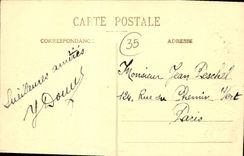 CARTE POSTALE
CORRESPONDANCE
ADRESSE
35
Meilleures amitiés
Monsieur Jean Peschel
124, Rue du Chemin Vert
Paris